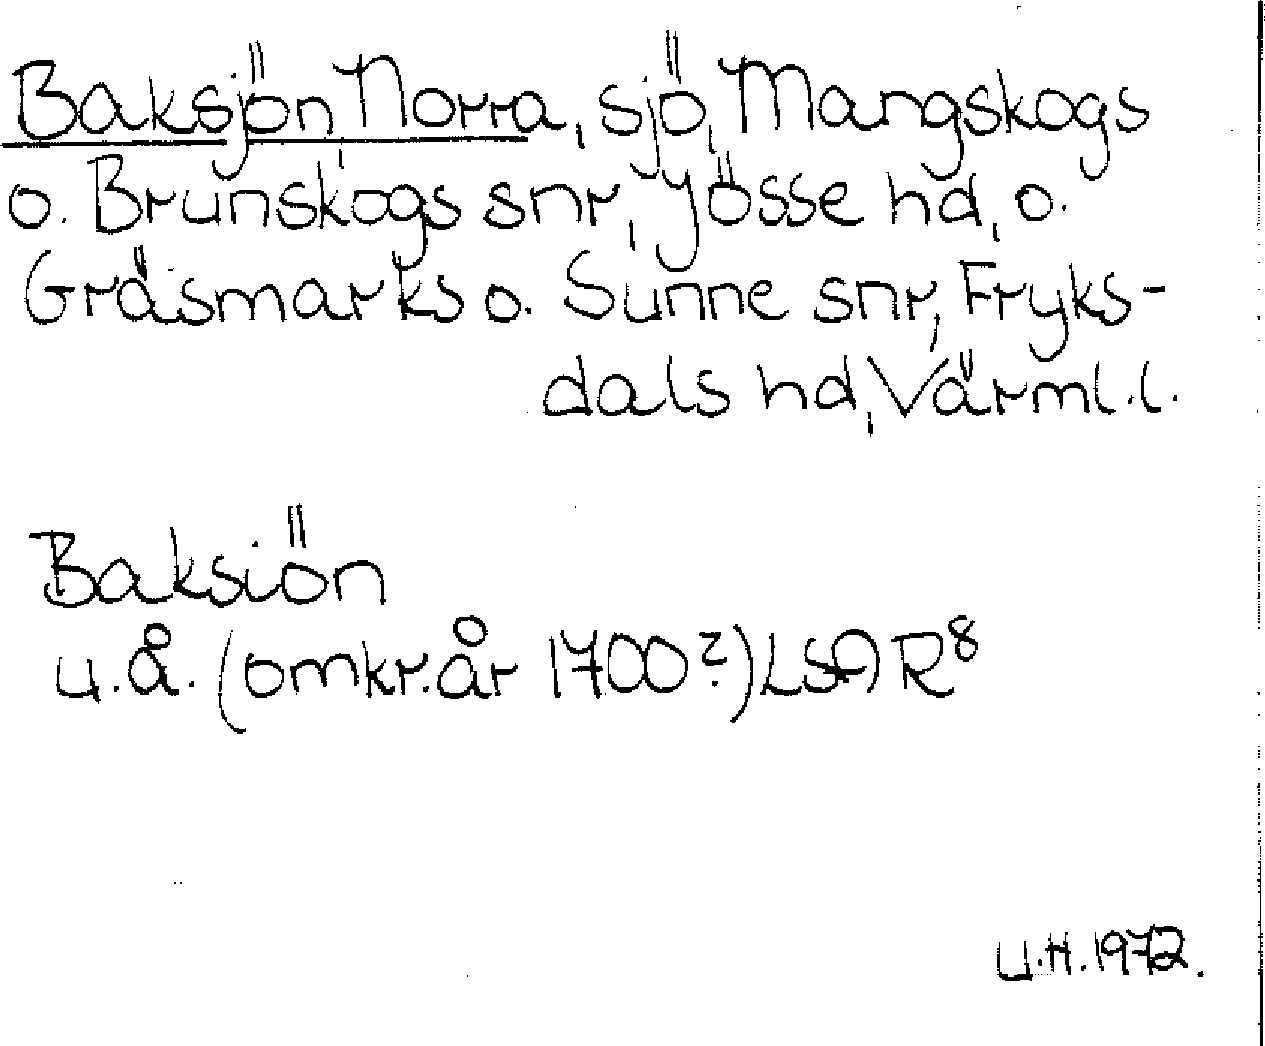 Baksjön, Norra, sjö, Mangskogs
o. Brunskogs snr, Jösse hd, o.
Gräsmarks o. Sunne snr, Fryks-
dals hd, Värml. l.
Baksiön
u. å. (omkr. år 1700?) LSA R⁸
U.H. 1972.